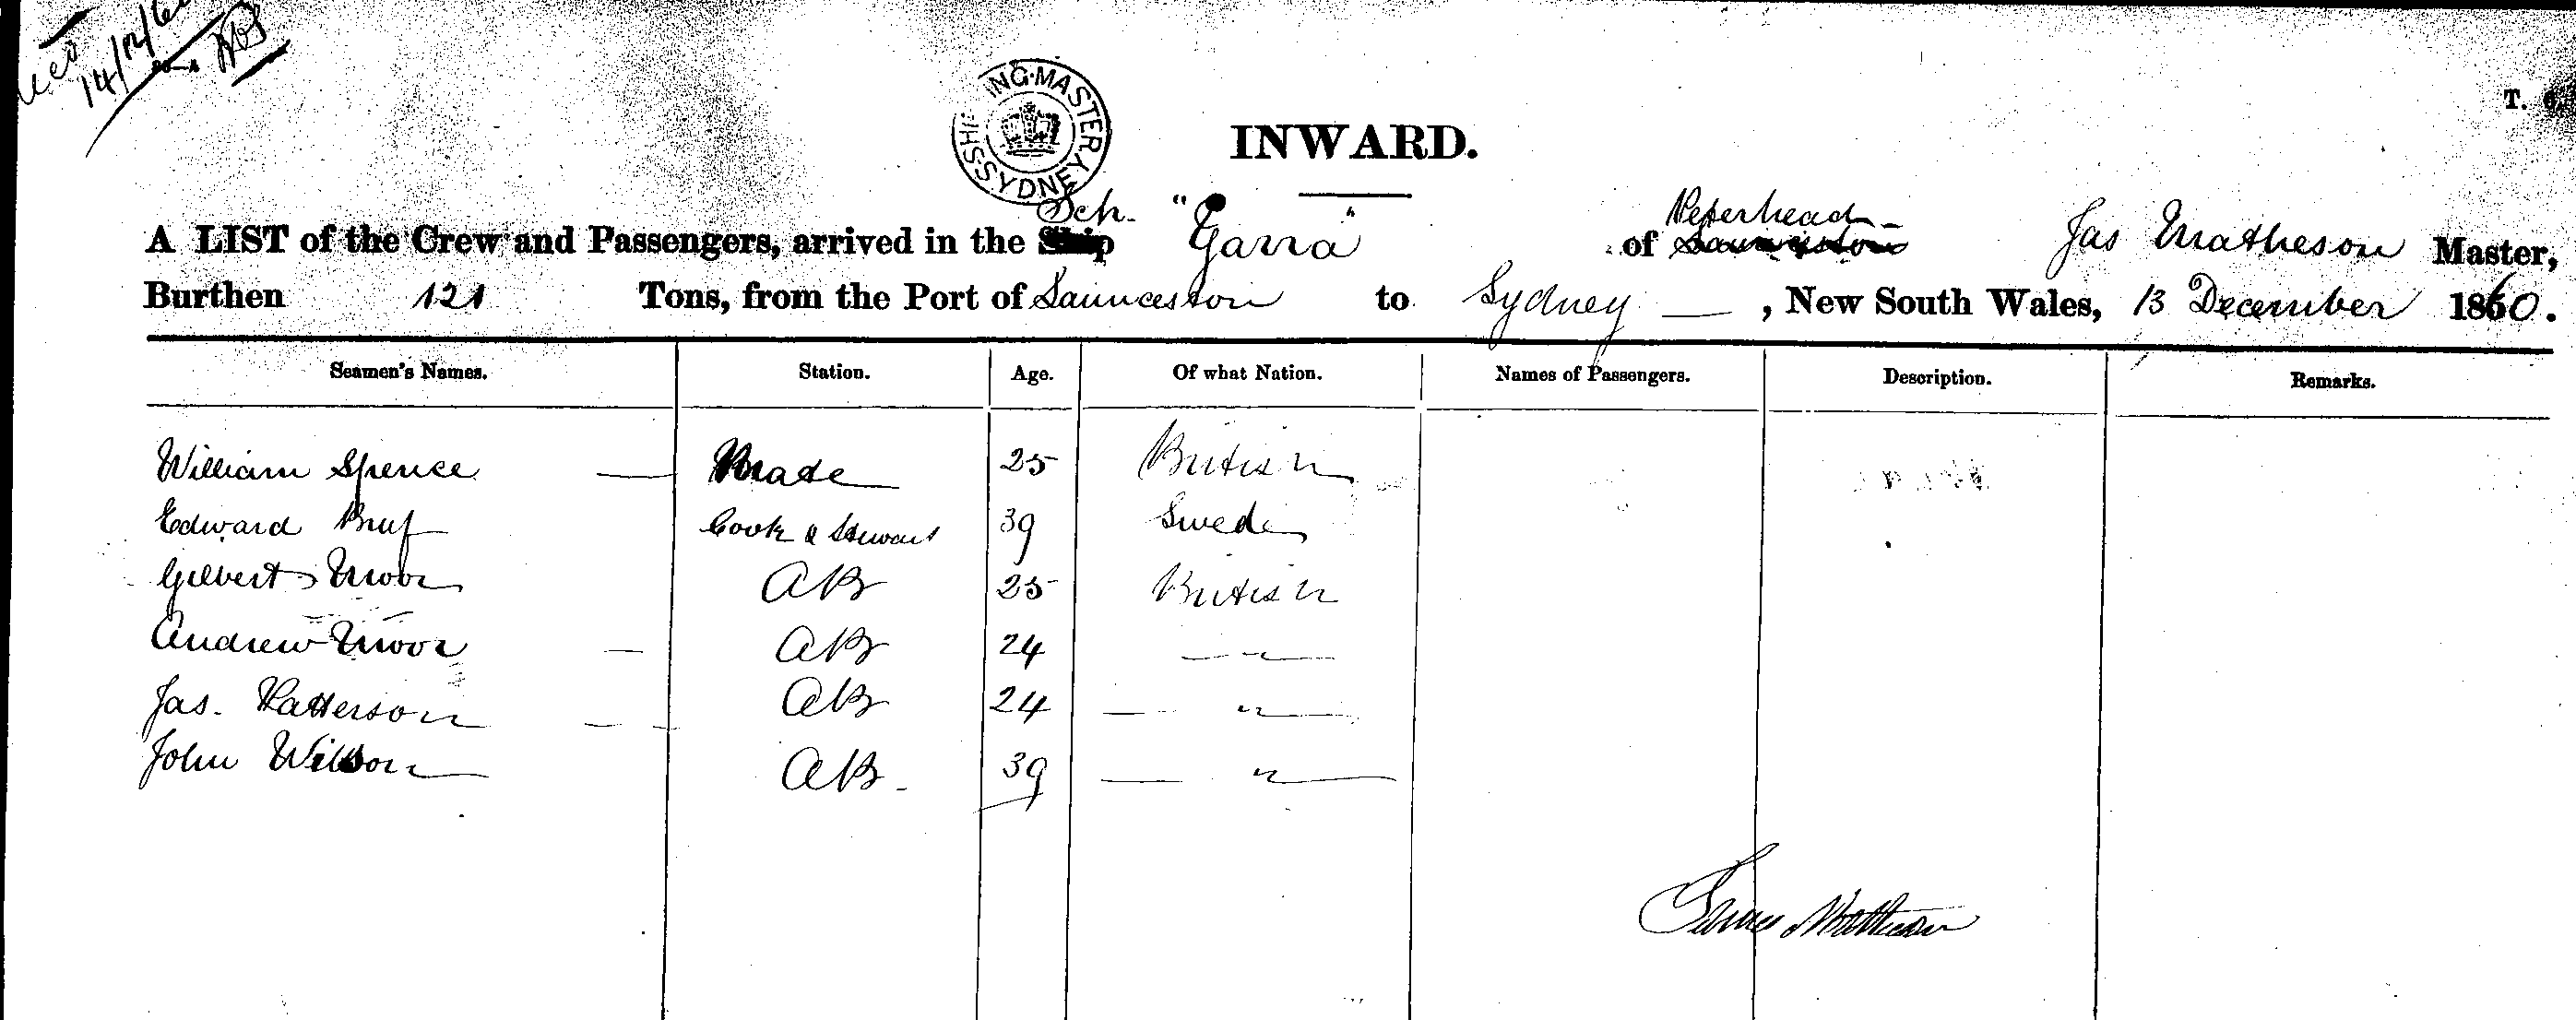 14/12/60
SHIPPING·MASTER SYDNEY
T. 6.
INWARD.
A LIST of the Crew and Passengers, arrived in the Ship Sch. "Yarra" of Launceston Peterhead Jas Matheson Master,
Burthen 121 Tons, from the Port of Launceston to Sydney , New South Wales, 13 December 1860.
Seamen's Names. Station. Age. Of what Nation. Names of Passengers. Description. Remarks.
William Spence — Mate 25 British
Edward Cook & Steward 39 Swede
Gilbert Moor AB 25 British
Andrew Moor — AB 24 — " —
Jas. Patterson — AB 24 — " —
John Wilson AB - 39 — " —
James Matheson